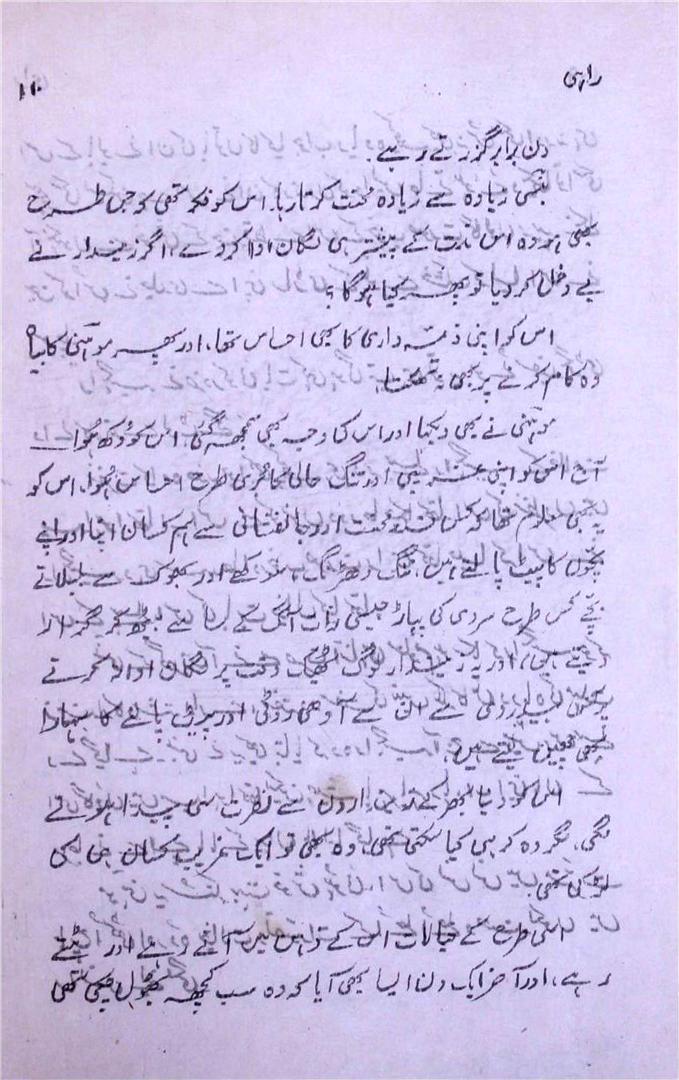 راہی
۱۰
دن برابر گزرتے رہے۔
بنسی زیادہ سے زیادہ محنت کرتا رہا۔ اس کو فکر تھی کہ جس طرح
بھی ہو وہ اس مدت سے پیشتر ہی لگان ادا کر دے، اگر زمیندار نے
بے دخل کر دیا تو پھر کیا ہوگا؟
اس کو اپنی ذمہ داری کا بھی احساس تھا، اور پھر موہنی کا بیاہ
وہ کام کرنے پر بھی نہ تھکتا۔
موہنی نے بھی دیکھا اور اس کی وجہ بھی سمجھ گئی اس کو دکھ ہوا
آج اس کو اپنی غریبی اور تنگ حالی کا پوری طرح احساس ہوا، اس کو
یہ بھی معلوم تھا کہ کس قدر محنت اور جانفشانی سے ہم کسان اپنا اور اپنے
بچوں کا پیٹ پالتے ہیں، ننگ دھڑنگ، سوکھے اور بھوک سے بلبلاتے
بچے کس طرح سردی کی پہاڑ جیسی رات آگ کے پاس بیٹھ کر گزار
دیتے ہیں، اور یہ زمیندار لوگ ٹھیک وقت پر لگان ادا نہ کرنے
پر کس بیدردی سے ان سے آدھی روٹی اور پیٹ پالنے کا سہارا
بھی چھین لیتے ہیں۔
اس کو دنیا بھر کے زمینداروں سے نفرت سی پیدا ہونے
لگی، مگر وہ کر ہی کیا سکتی تھی، وہ بھی تو ایک غریب کسان ہی کی
لڑکی تھی۔
اسی طرح کے خیالات اس کے ذہن میں آتے رہے اور مٹتے
رہے، اور آخر ایک دن ایسا بھی آیا کہ وہ سب کچھ بھول چکی تھی